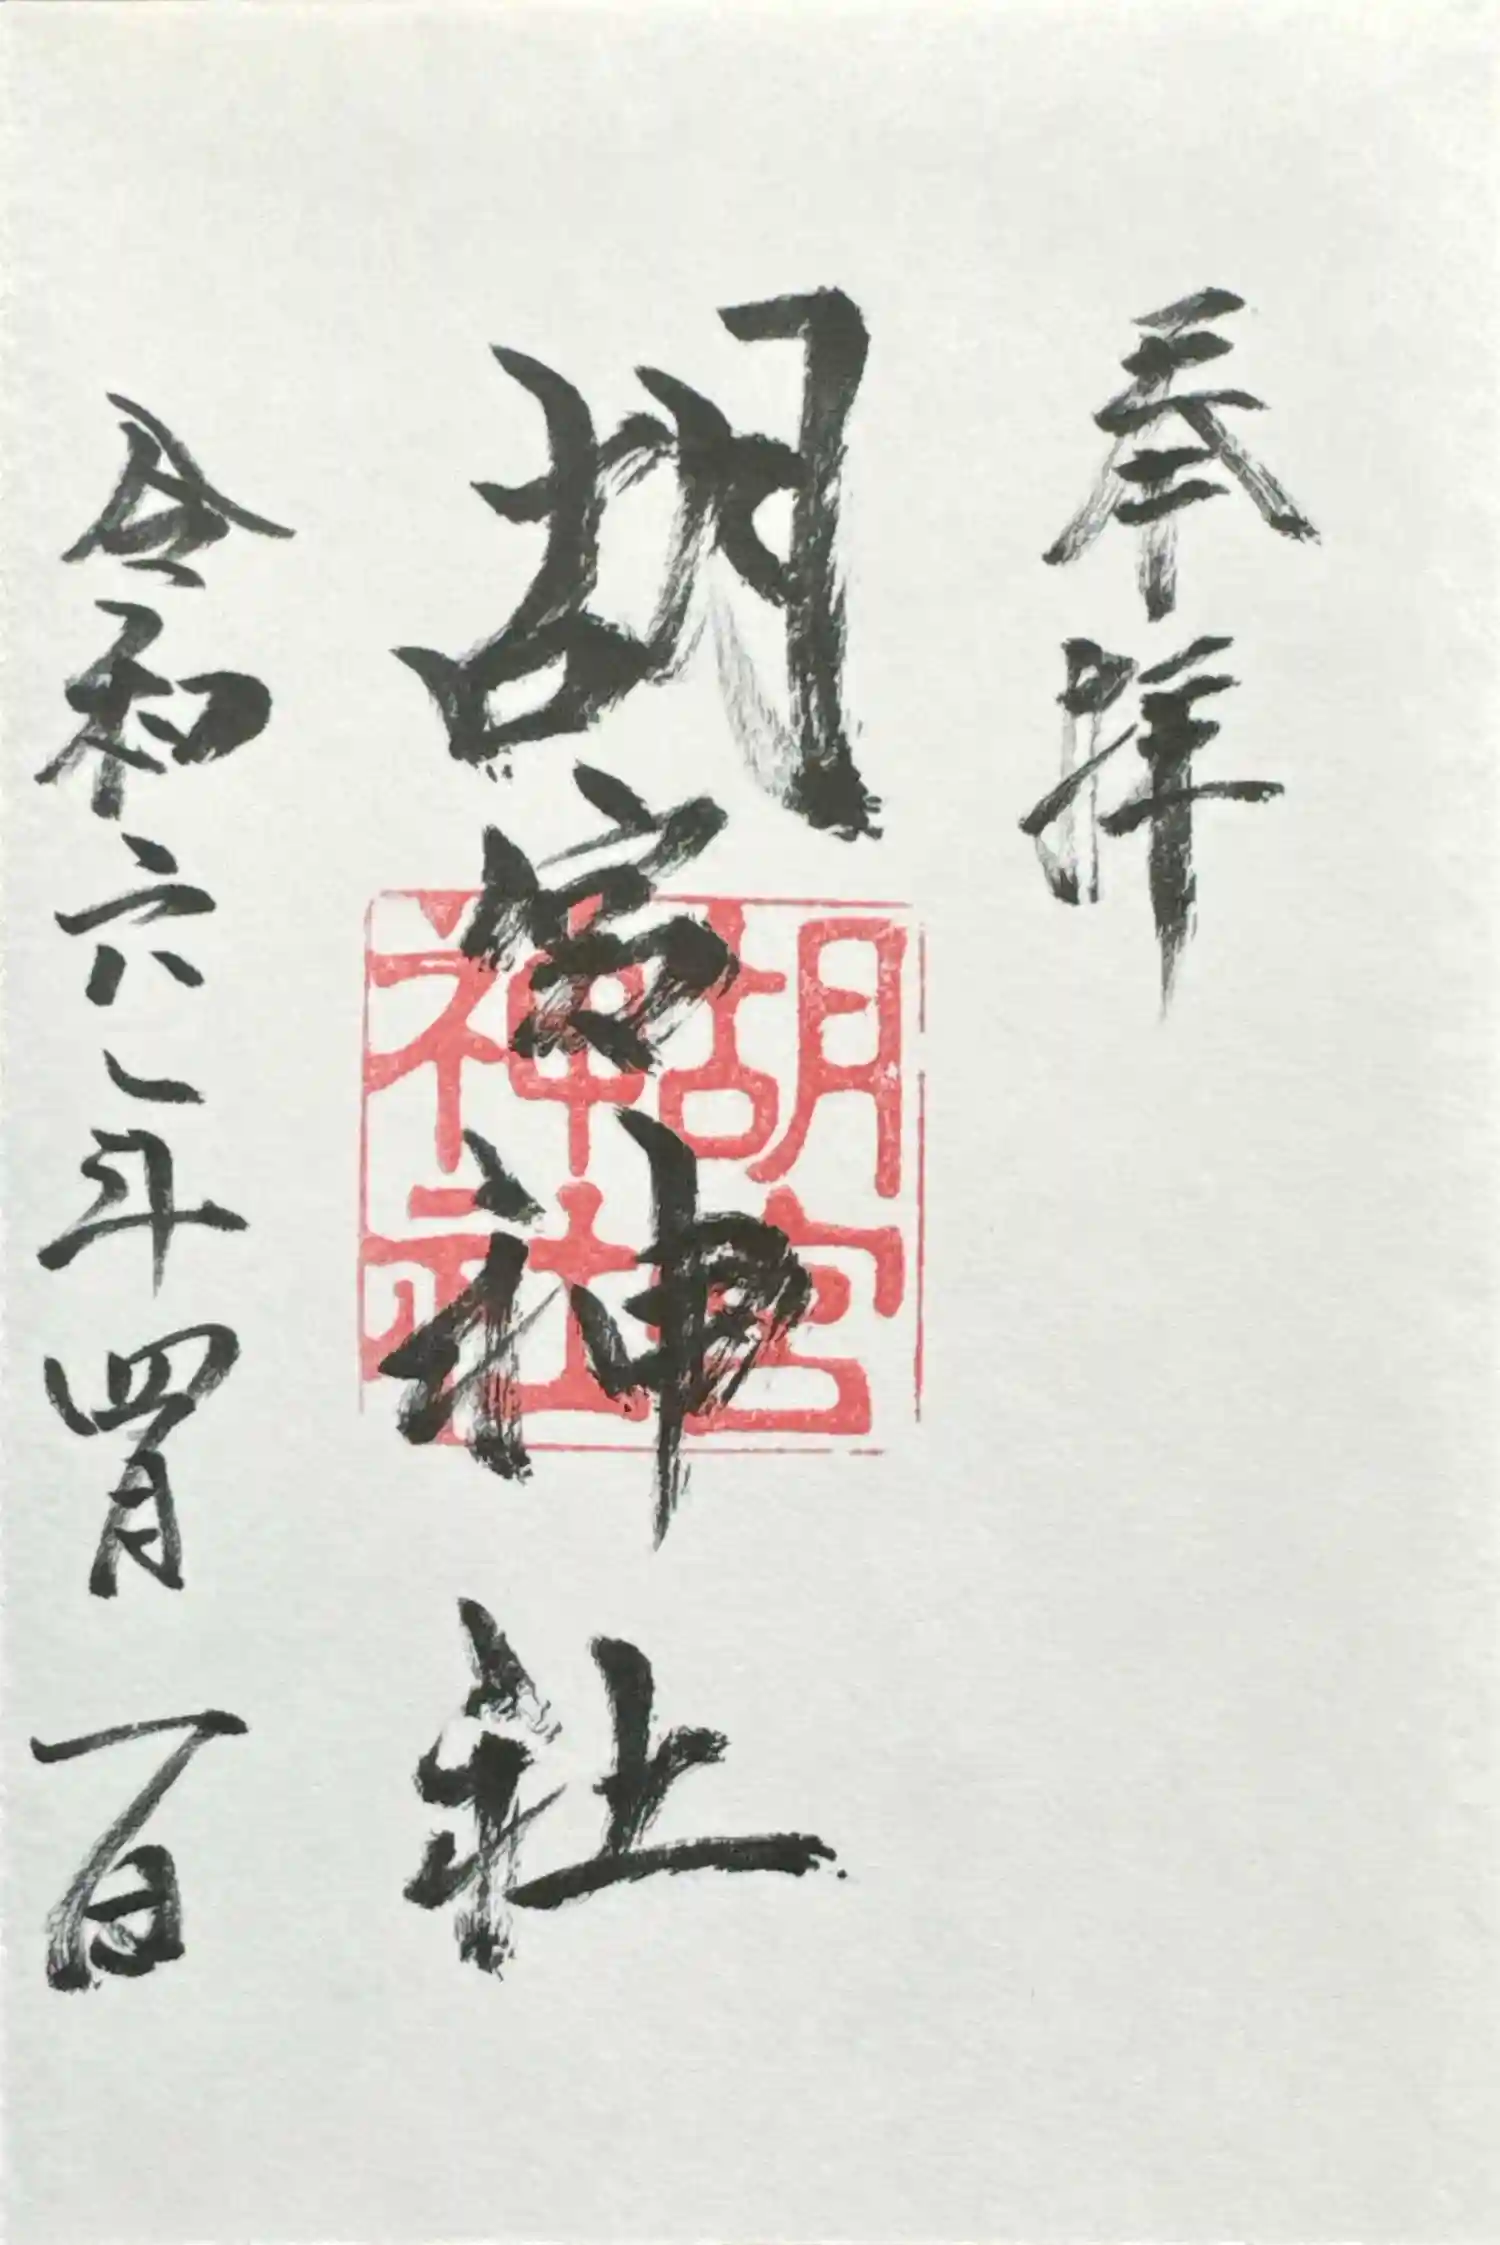 奉拝
胡宮神社
胡宮
神社
令和六年四月一日